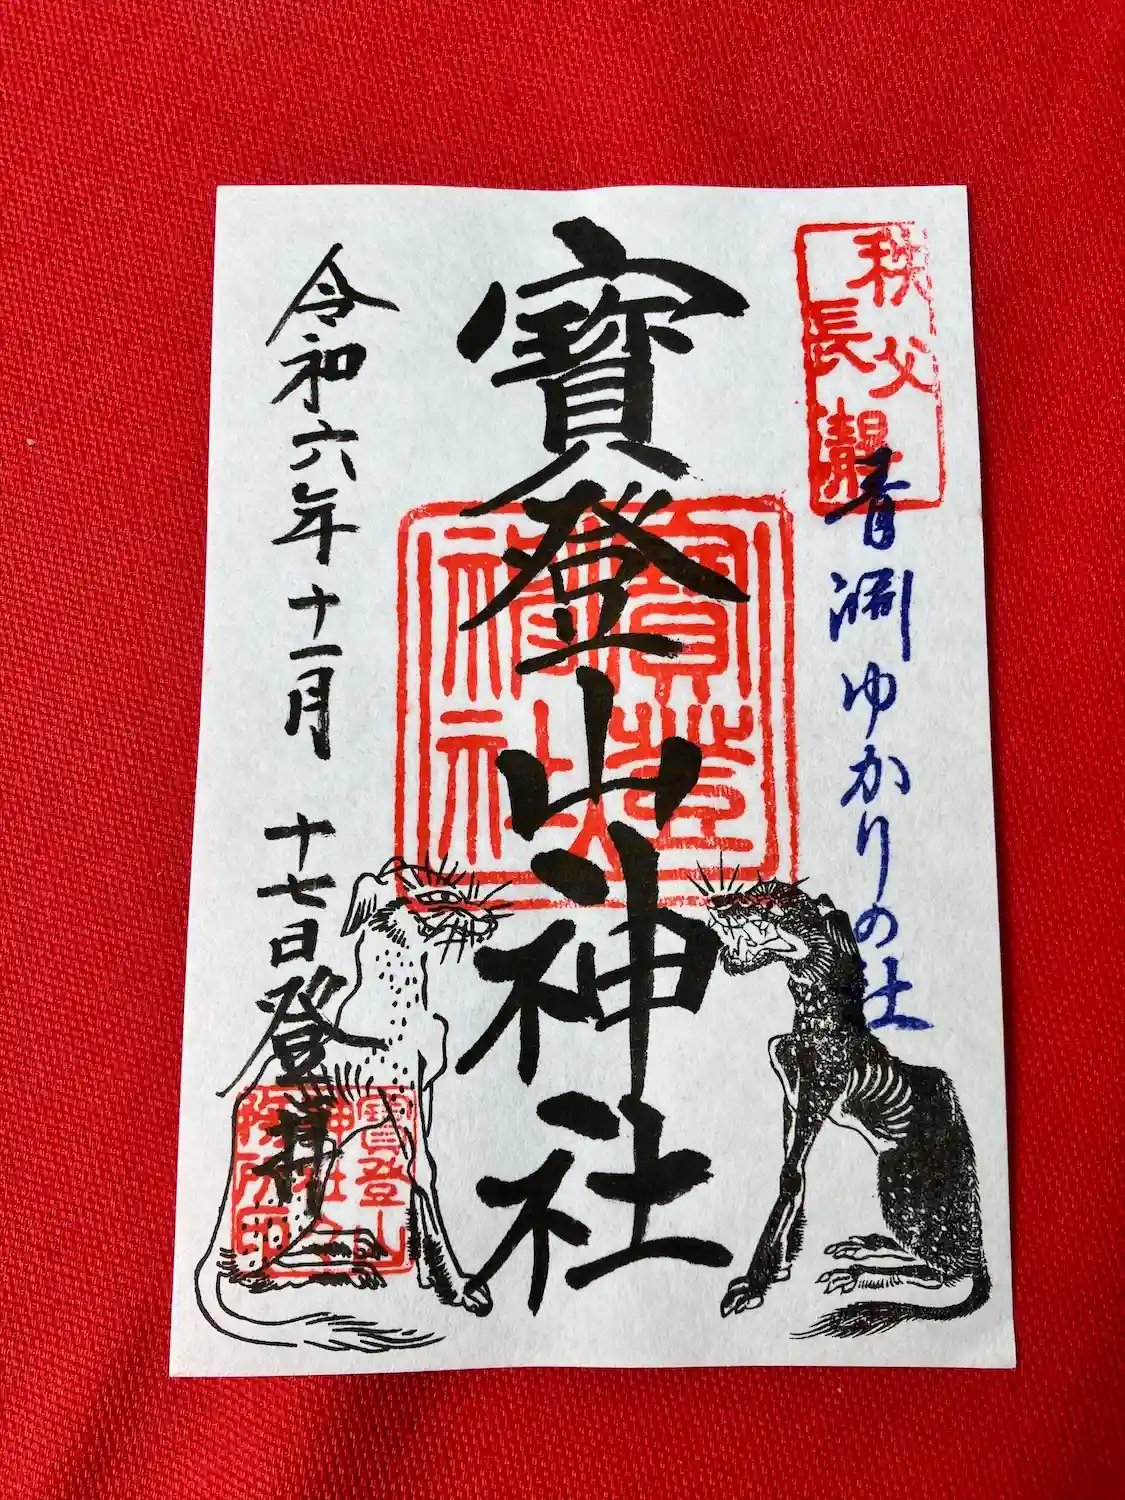 秩父
長瀞
青淵ゆかりの社
寶登山神社
寶登
神社
令和六年十一月 十七日登拝
寶登山
神社
務所印